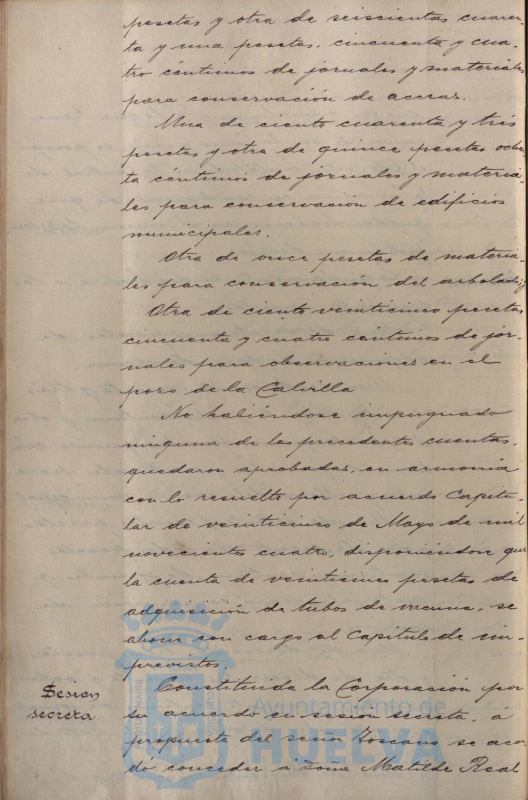 pesetas y otra de seiscientas cuaren-
ta y una pesetas, cincuenta y cua-
tro céntimos de jornales y materiales
para conservación de aceras.
Una de ciento cuarenta y trés
pesetas y otra de quince pesetas ochen-
ta céntimos de jornales y materia-
les para conservación de edificios
municipales.
Otra de once pesetas de materia-
les para conservación del arbolado; y
Otra de ciento veinticinco pesetas
cincuenta y cuatro céntimos de jor-
nales para observaciones en el
pozo de la Calvilla
No habiéndose impugnado
ninguna de las precedentes cuentas,
quedaron aprobadas, en armonía
con lo resuelto por acuerdo Capitu-
lar de veinticinco de Mayo de mil
novecientos cuatro, disponiéndose que
la cuenta de veinticinco pesetas de
adquisición de tubos de vacuna, se
abone con cargo al Capítulo de im-
previstos.
Sesion
secreta
Constituida la Corporación por
su acuerdo en sesión secreta, á
propuesta del señor Toscano se acor-
dó conceder á Doña Matilde Real
Ayuntamiento de
HUELVA